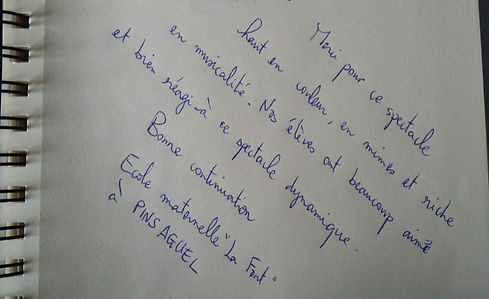 Merci pour ce spectacle
haut en couleur, en mimes et riche
en musicalité. Nos élèves ont beaucoup aimé
et bien réagi à ce spectacle dynamique.
Bonne continuation
Ecole maternelle "La Font"
à PINSAGUEL